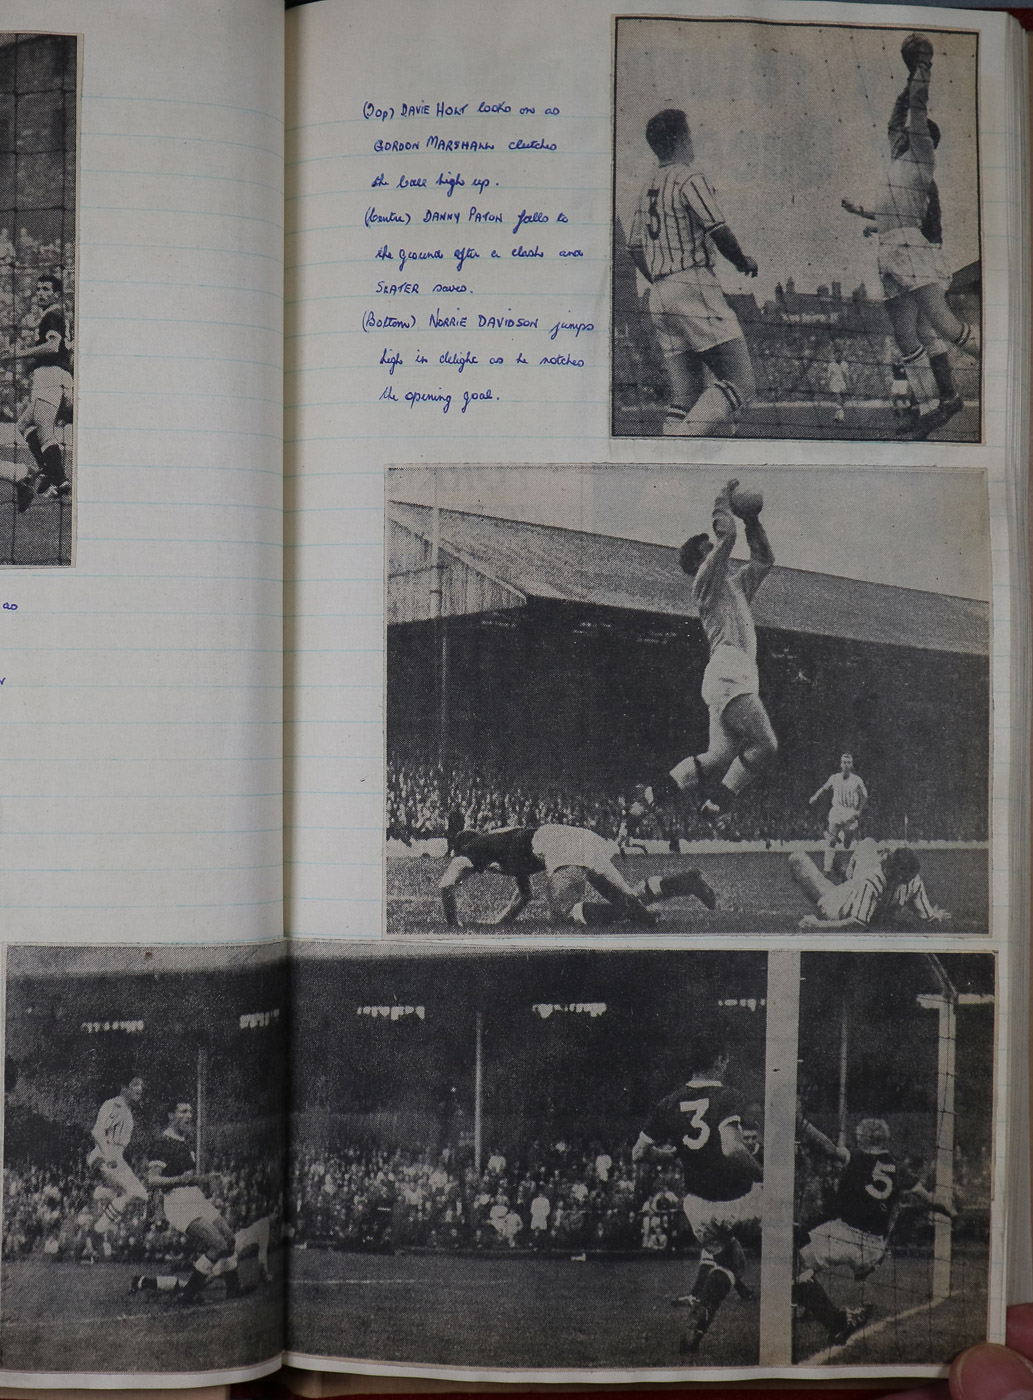 (Top) DAVIE HOLT looks on as
GORDON MARSHALL clutches
the ball high up.
(Centre) DANNY PATON falls to
the ground after a clash and
SLATER saves.
(Bottom) NORRIE DAVIDSON jumps
high in delight as he notches
the opening goal.
as
3
3
5